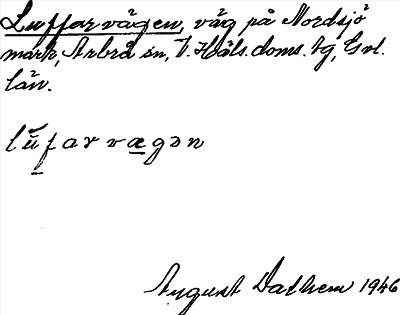 Luffarvägen, väg på Nordsjö
mark, Arbrå sn, V. Häls. doms. tg, Gvl.
län.
lufarvägən
August Dalhem 1946